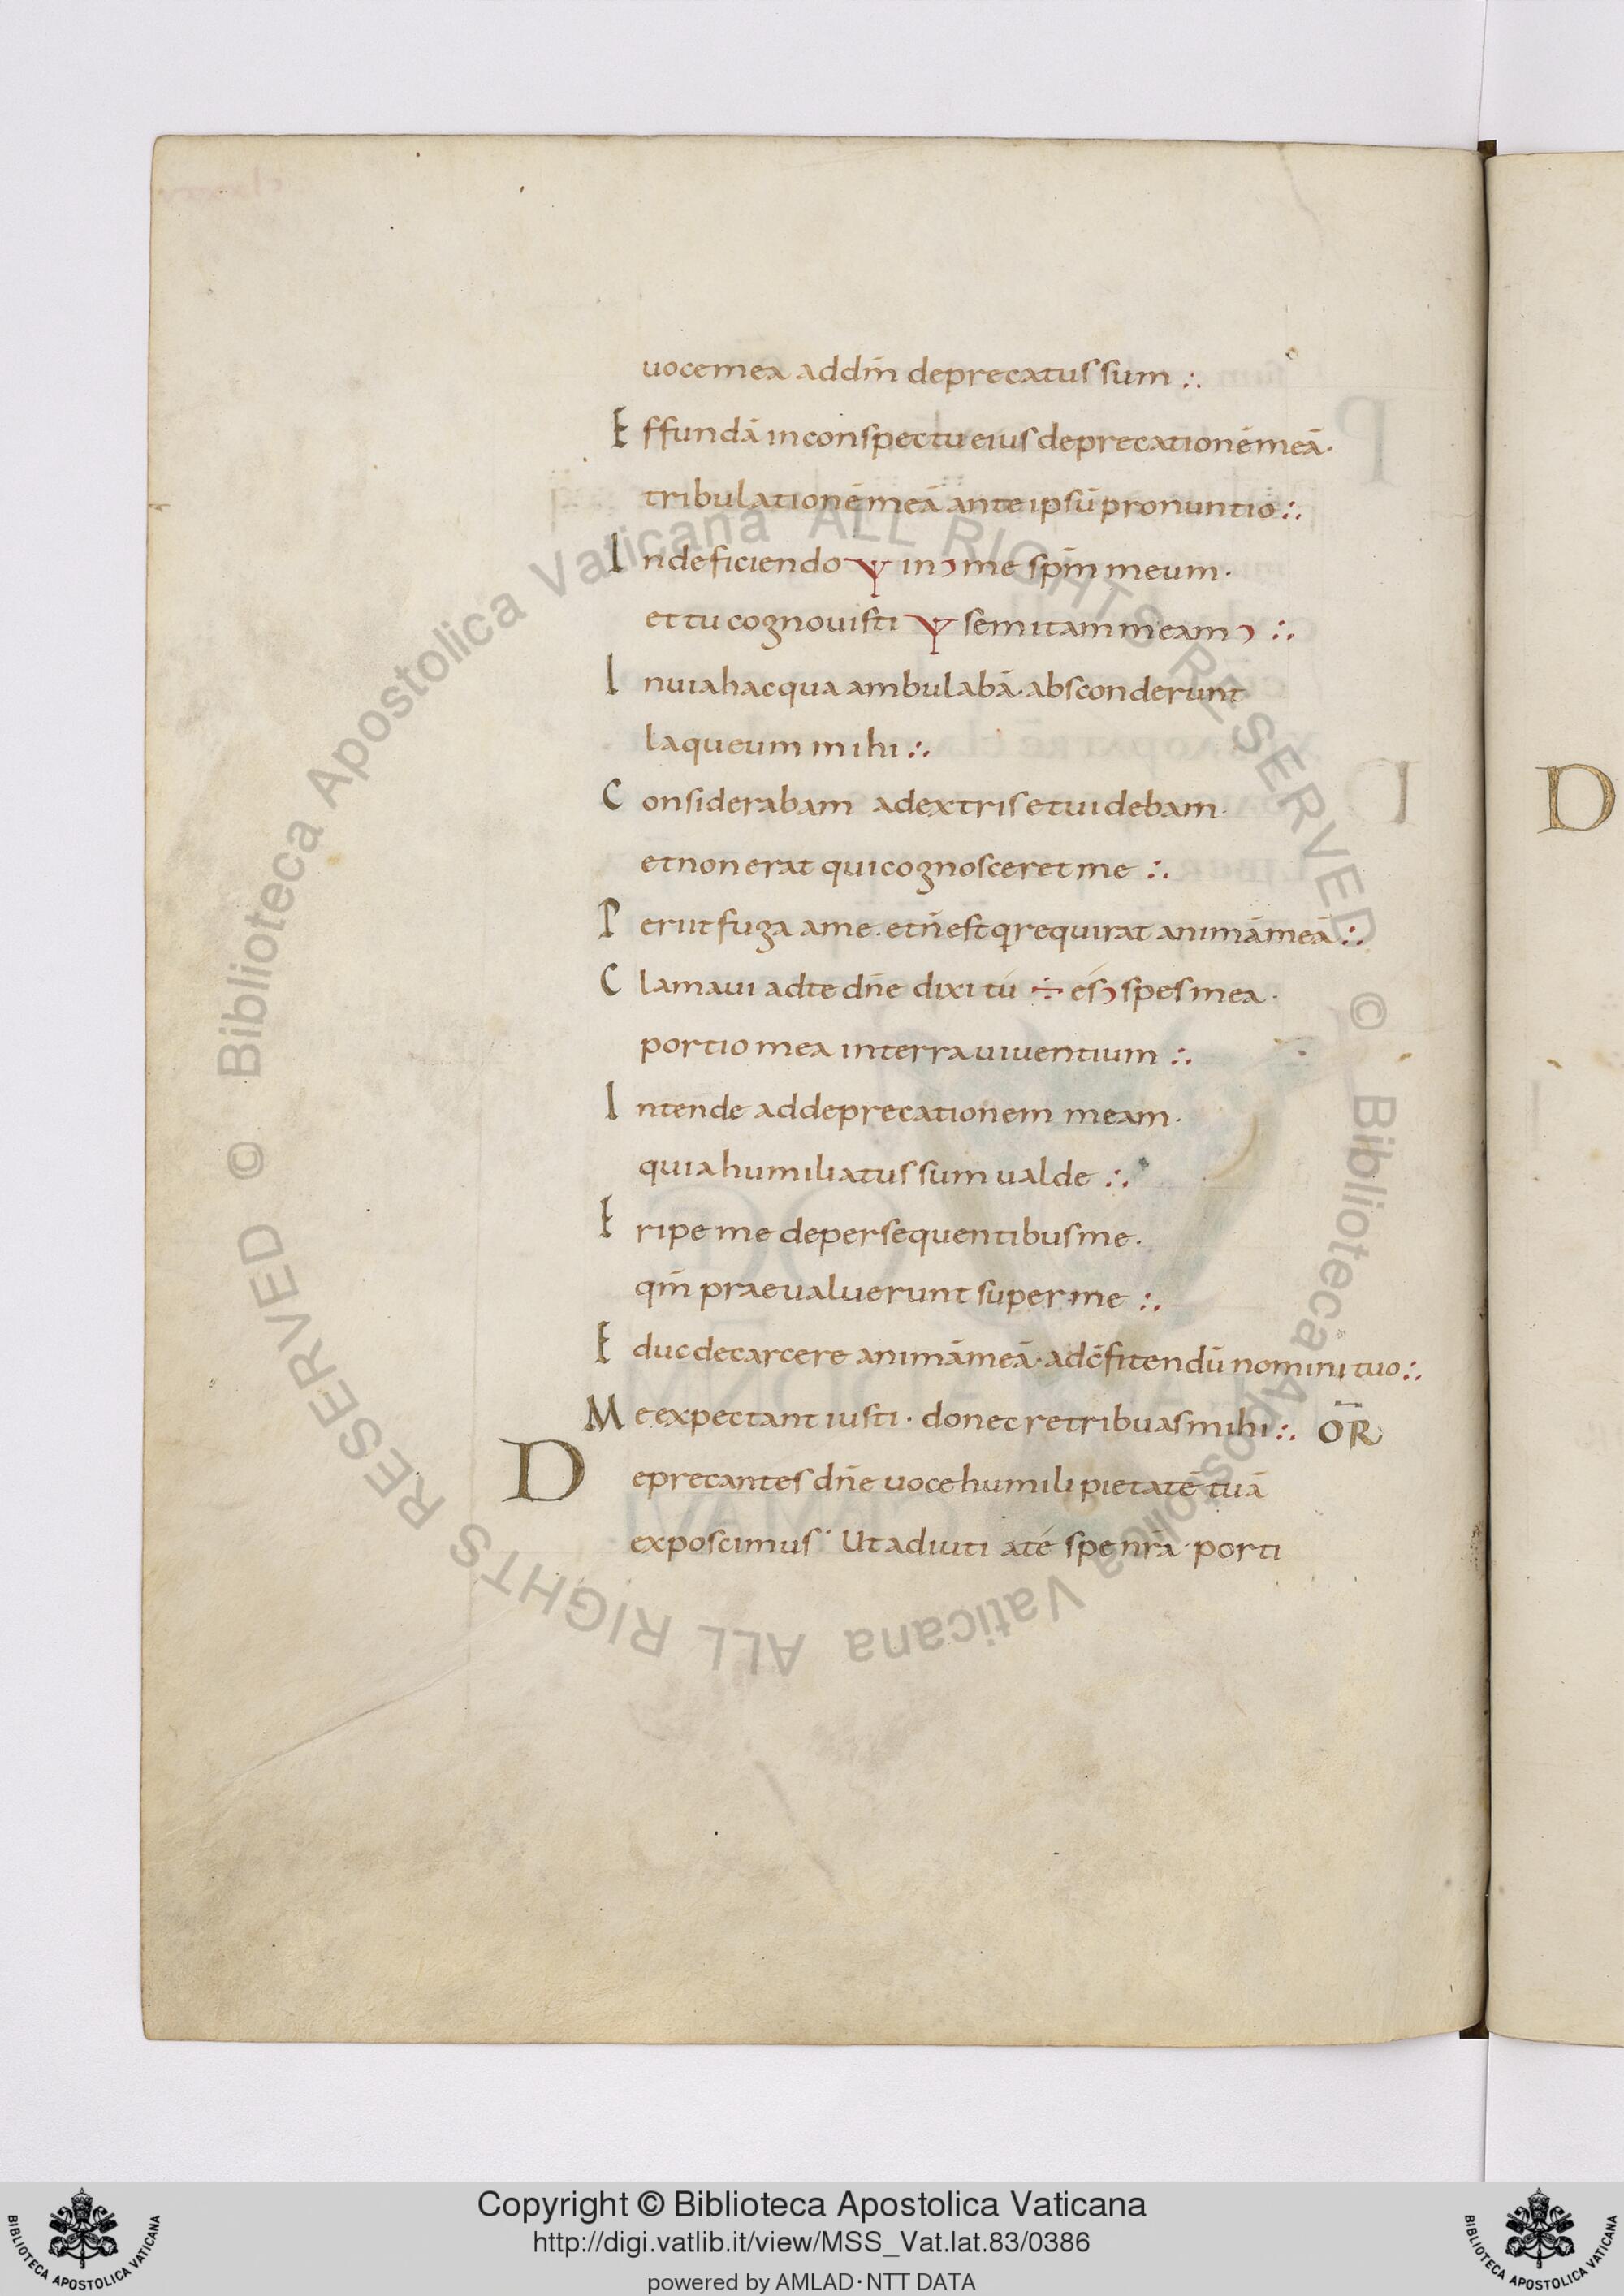 uoce mea ad dn̄m deprecatus sum :.
Effundā in conspectu eius deprecationē meā.
tribulationē meā ante ipsū pronuntio :.
In deficiendo ⍒ in ɔ me sp̄m meum.
et tu cognouisti ⍒ semitam meam ɔ :.
In uia hac qua ambulabā. absconderunt
laqueum mihi :.
Considerabam ad extris et uidebam.
et non erat qui cognosceret me :.
Periit fuga a me. et n̄ est q requirat animā meā :.
Clamaui ad te dn̄e dixi tú ÷ és ɔ spes mea.
portio mea in terra uiuentium :.
Intende ad deprecationem meam.
quia humiliatus sum ualde :.
Eripe me de persequentibus me.
qm̄ praeualuerunt super me :.
Educ de carcere animā meā. ad c̄fitendū nomini tuo :.
Me expectant iusti. donec retribuas mihi :. ŌR
Deprecantes dn̄e uoce humili pietatē tuā
exposcimus. Ut adiuti a té spe nr̄a. porti
D
Biblioteca Apostolica Vaticana ALL RIGHTS RESERVED ©
Biblioteca Apostolica Vaticana ALL RIGHTS RESERVED ©
Copyright © Biblioteca Apostolica Vaticana
http://digi.vatlib.it/view/MSS_Vat.lat.83/0386
powered by AMLAD·NTT DATA
BIBLIOTECA APOSTOLICA VATICANA
BIBLIOTECA APOSTOLICA VATICANA